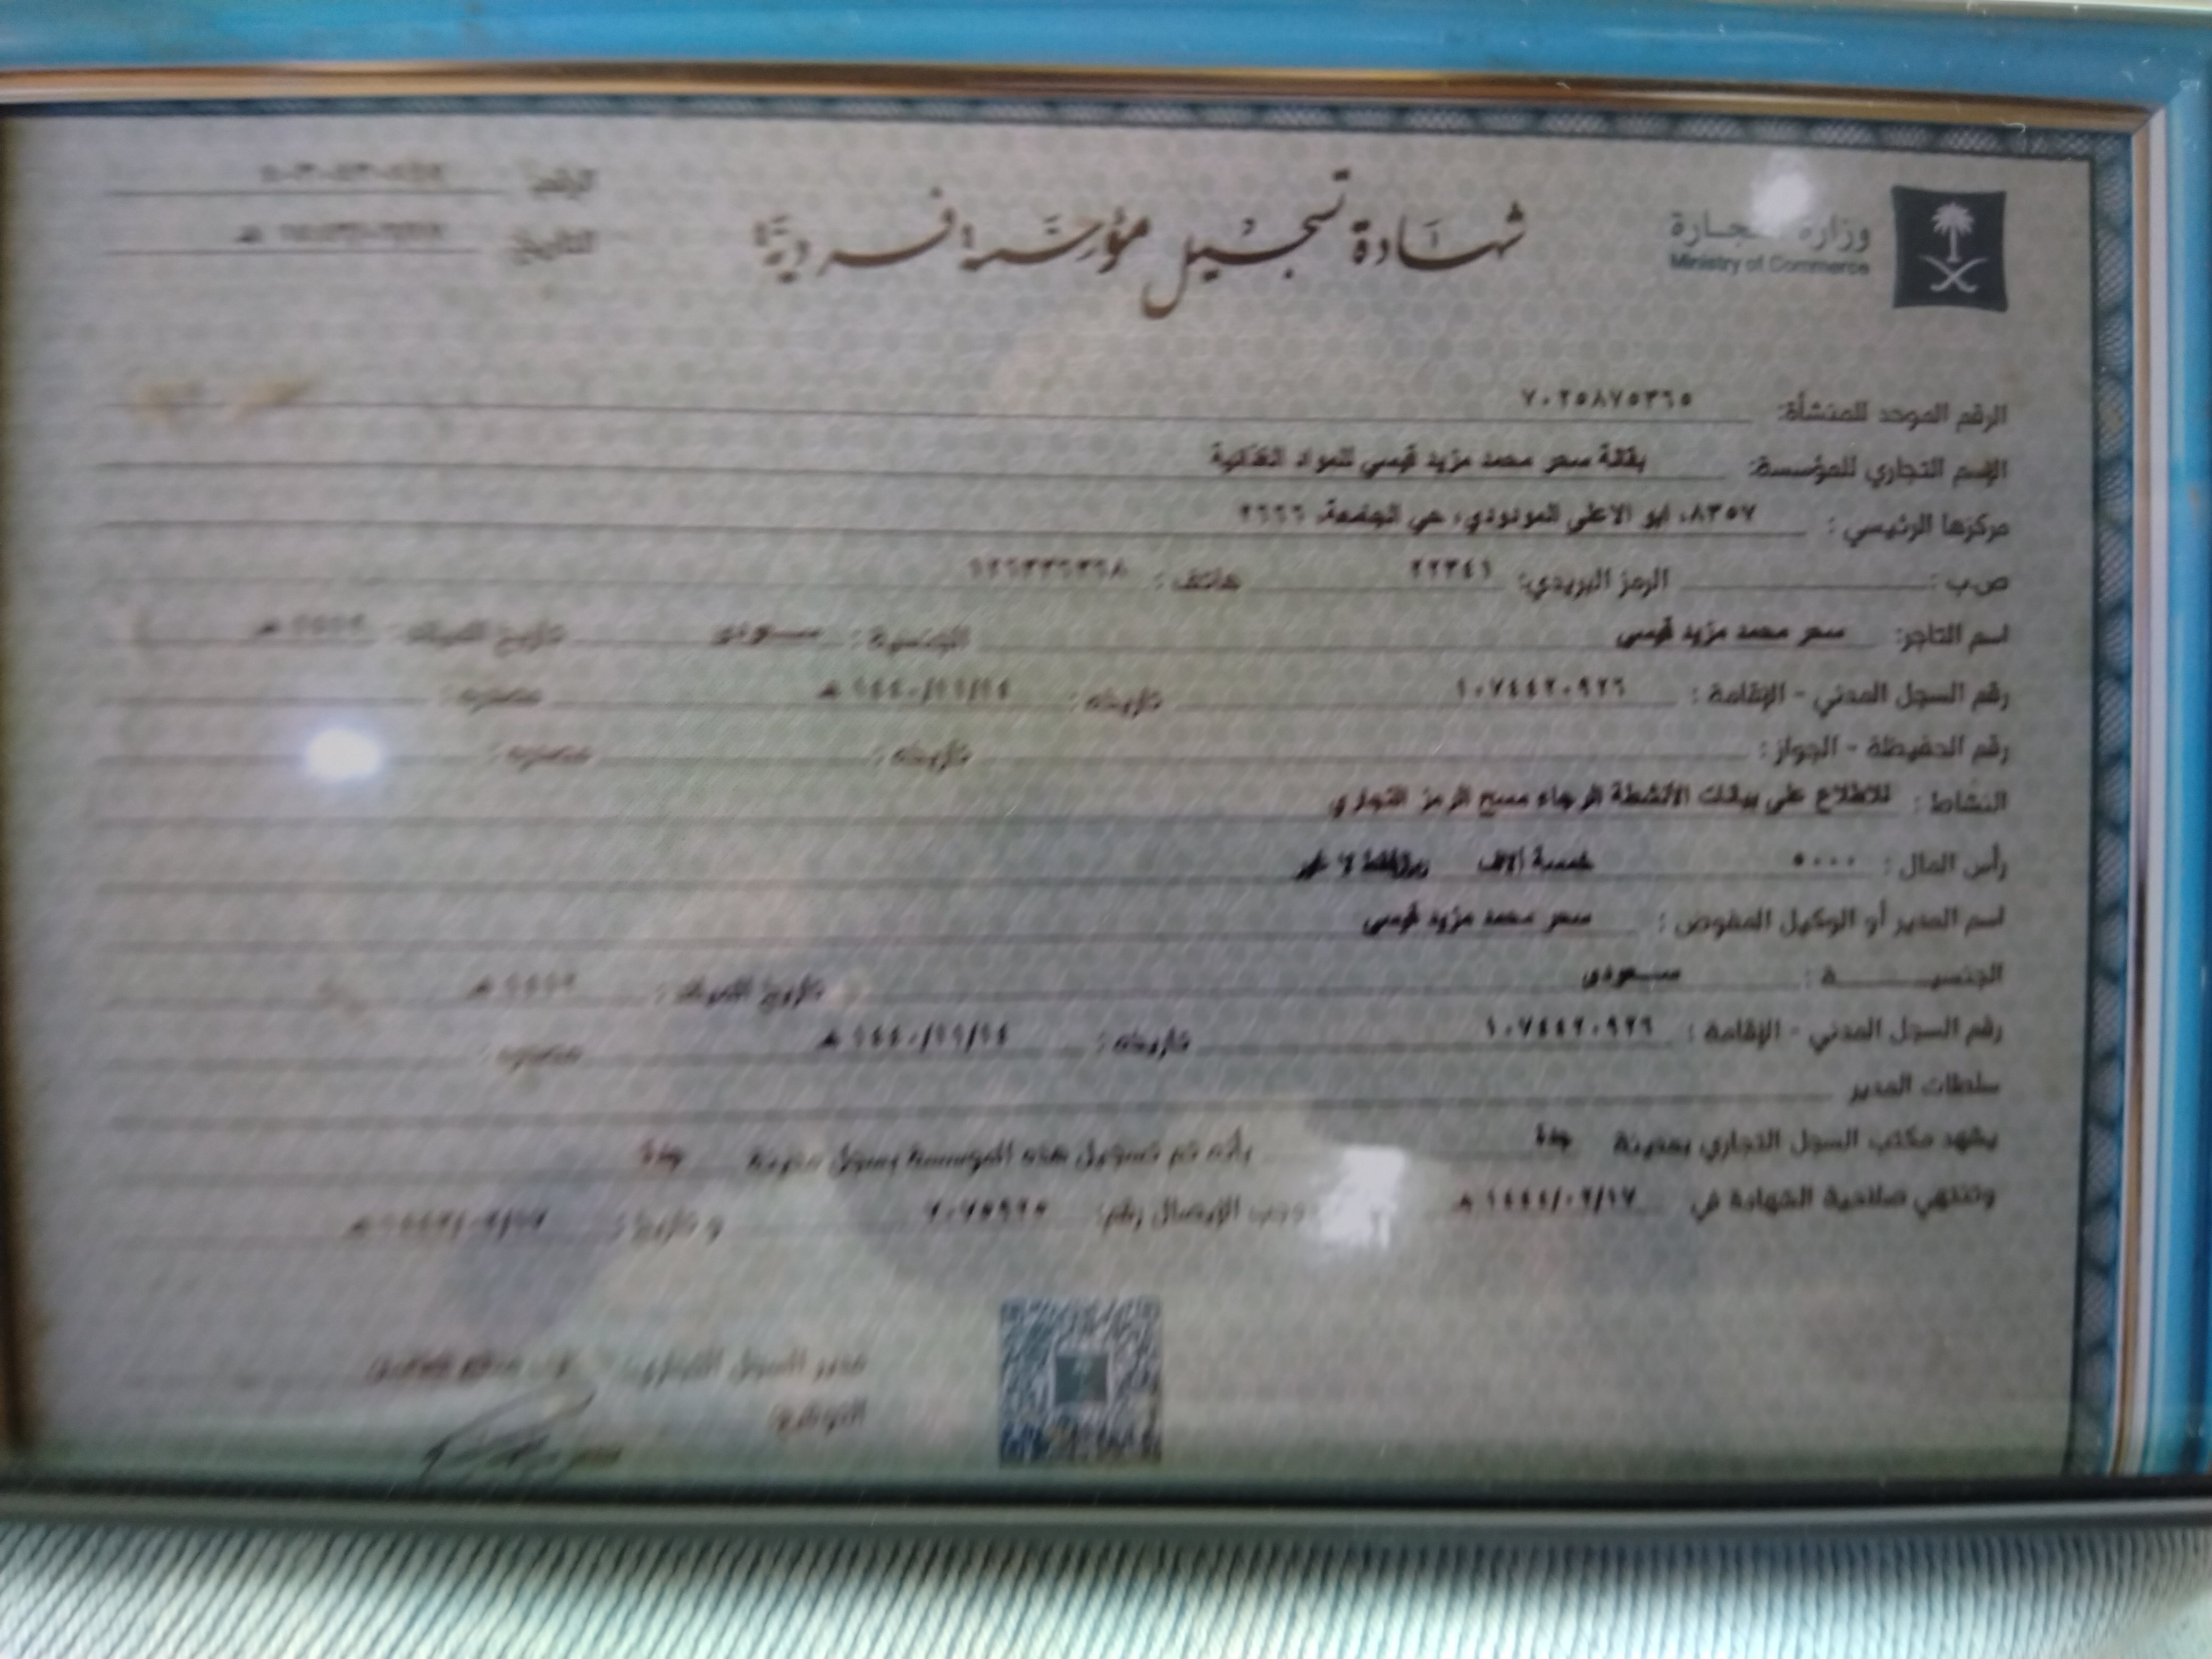 وزارة التجارة
Ministry of Commerce
شهادة تسجيل مؤسسة فردية
الرقم
التاريخ هـ
الرقم الموحد للمنشأة: ٧٠٢٥٨٧٥٣٦٥
الإسم التجاري للمؤسسة: بقالة سحر محمد مزيد قيسي للمواد الغذائية
مركزها الرئيسي : ٨٣٥٧، ابو الاعلى المودودي، حي الجامعة، ٢٦٦٦
ص.ب : الرمز البريدي: ٢٢٣٤١ هاتف :
اسم التاجر: سحر محمد مزيد قيسي الجنسية : سعودي تاريخ الميلاد : هـ
رقم السجل المدني - الإقامة : ١٠٧٤٤٢٠٩٢٦ تاريخه : ١٤٤٠/١١/١٤ هـ مصدره :
رقم الحفيظة - الجواز : تاريخه : مصدره :
النشاط : للاطلاع على بيانات الأنشطة الرجاء مسح الرمز التجاري
رأس المال : ٥٠٠٠ خمسة آلاف ريال فقط لا غير
اسم المدير أو الوكيل المفوض : سحر محمد مزيد قيسي
الجنسيـــة : سعودي تاريخ الميلاد : هـ
رقم السجل المدني - الإقامة : ١٠٧٤٤٢٠٩٢٦ تاريخه : ١٤٤٠/١١/١٤ هـ مصدره :
سلطات المدير
يشهد مكتب السجل التجاري بمدينة جدة بأنه تم تسجيل هذه المؤسسة بسجل مدينة جدة
وتنتهي صلاحية الشهادة في هـ الإيصال رقم: و تاريخ : هـ
مدير السجل التجاري:
التوقيع: